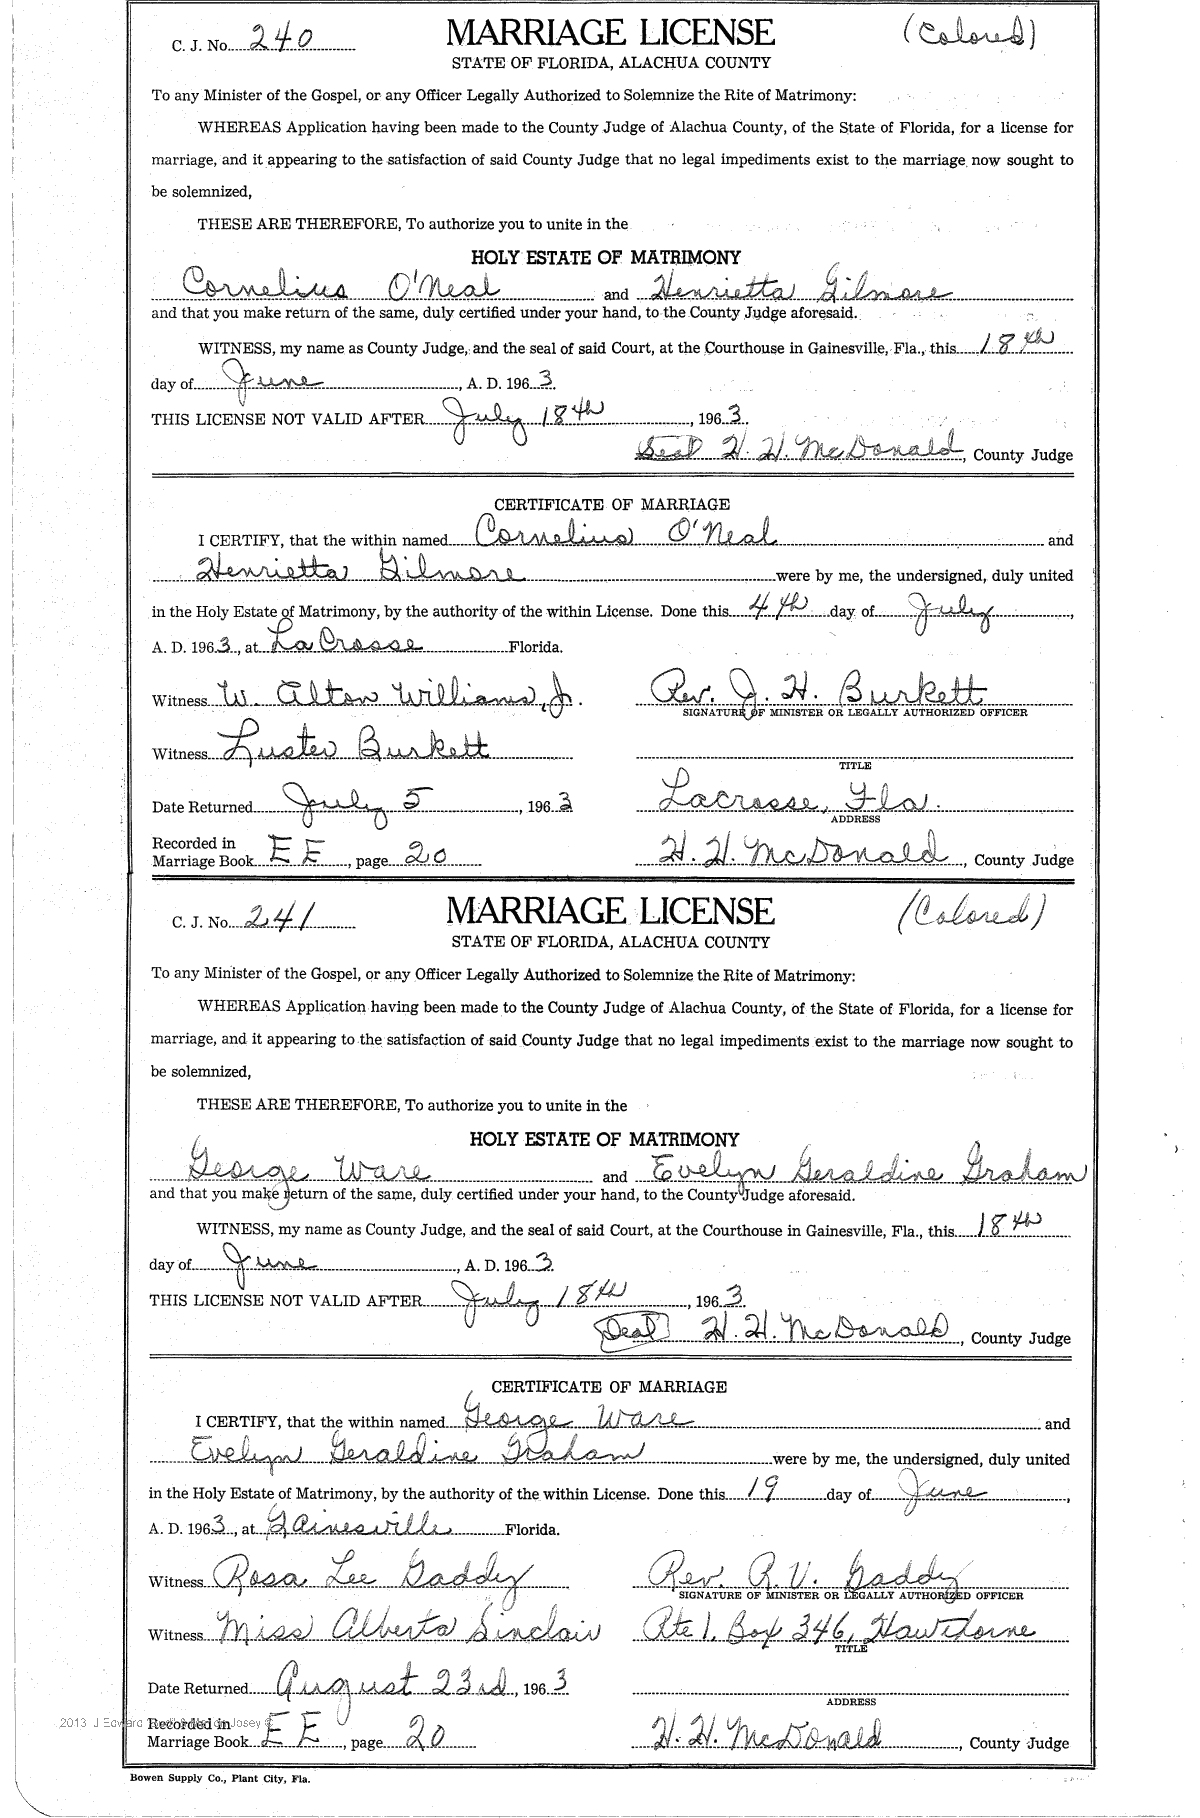 C. J. No. 240 MARRIAGE LICENSE (Colored)
STATE OF FLORIDA, ALACHUA COUNTY
To any Minister of the Gospel, or any Officer Legally Authorized to Solemnize the Rite of Matrimony:
WHEREAS Application having been made to the County Judge of Alachua County, of the State of Florida, for a license for
marriage, and it appearing to the satisfaction of said County Judge that no legal impediments exist to the marriage now sought to
be solemnized,
THESE ARE THEREFORE, To authorize you to unite in the
HOLY ESTATE OF MATRIMONY
Cornelius O'Neal and Henrietta Gilmore
and that you make return of the same, duly certified under your hand, to the County Judge aforesaid.
WITNESS, my name as County Judge, and the seal of said Court, at the Courthouse in Gainesville, Fla., this 18th
day of June, A. D. 1963.
THIS LICENSE NOT VALID AFTER July 18th, 1963.
Seal H. H. McDonald, County Judge
CERTIFICATE OF MARRIAGE
I CERTIFY, that the within named Cornelius O'Neal and
Henrietta Gilmore were by me, the undersigned, duly united
in the Holy Estate of Matrimony, by the authority of the within License. Done this 4th day of July,
A. D. 1963, at LaCrosse Florida.
Witness W. Alton Williams, Jr. Rev. J. H. Burkett
SIGNATURE OF MINISTER OR LEGALLY AUTHORIZED OFFICER
Witness Luster Burkett
TITLE
Date Returned July 5, 1963 Lacrosse, Fla.
ADDRESS
Recorded in
Marriage Book EE, page 20 H. H. McDonald, County Judge
C. J. No. 241 MARRIAGE LICENSE (Colored)
STATE OF FLORIDA, ALACHUA COUNTY
To any Minister of the Gospel, or any Officer Legally Authorized to Solemnize the Rite of Matrimony:
WHEREAS Application having been made to the County Judge of Alachua County, of the State of Florida, for a license for
marriage, and it appearing to the satisfaction of said County Judge that no legal impediments exist to the marriage now sought to
be solemnized,
THESE ARE THEREFORE, To authorize you to unite in the
HOLY ESTATE OF MATRIMONY
George Ware and Evelyn Geraldine Graham
and that you make return of the same, duly certified under your hand, to the County Judge aforesaid.
WITNESS, my name as County Judge, and the seal of said Court, at the Courthouse in Gainesville, Fla., this 18th
day of June, A. D. 1963.
THIS LICENSE NOT VALID AFTER July 18th, 1963.
Seal H. H. McDonald, County Judge
CERTIFICATE OF MARRIAGE
I CERTIFY, that the within named George Ware and
Evelyn Geraldine Graham were by me, the undersigned, duly united
in the Holy Estate of Matrimony, by the authority of the within License. Done this 19 day of June,
A. D. 1963, at Gainesville Florida.
Witness Rosa Lee Gaddy Rev. R. V. Gaddy
SIGNATURE OF MINISTER OR LEGALLY AUTHORIZED OFFICER
Witness Miss Alberta Sinclair Rte 1, Box 346, Hawthorne
TITLE
Date Returned August 23rd, 1963
ADDRESS
2013 J Josey
Recorded in
Marriage Book EE, page 20 H. H. McDonald, County Judge
Bowen Supply Co., Plant City, Fla.